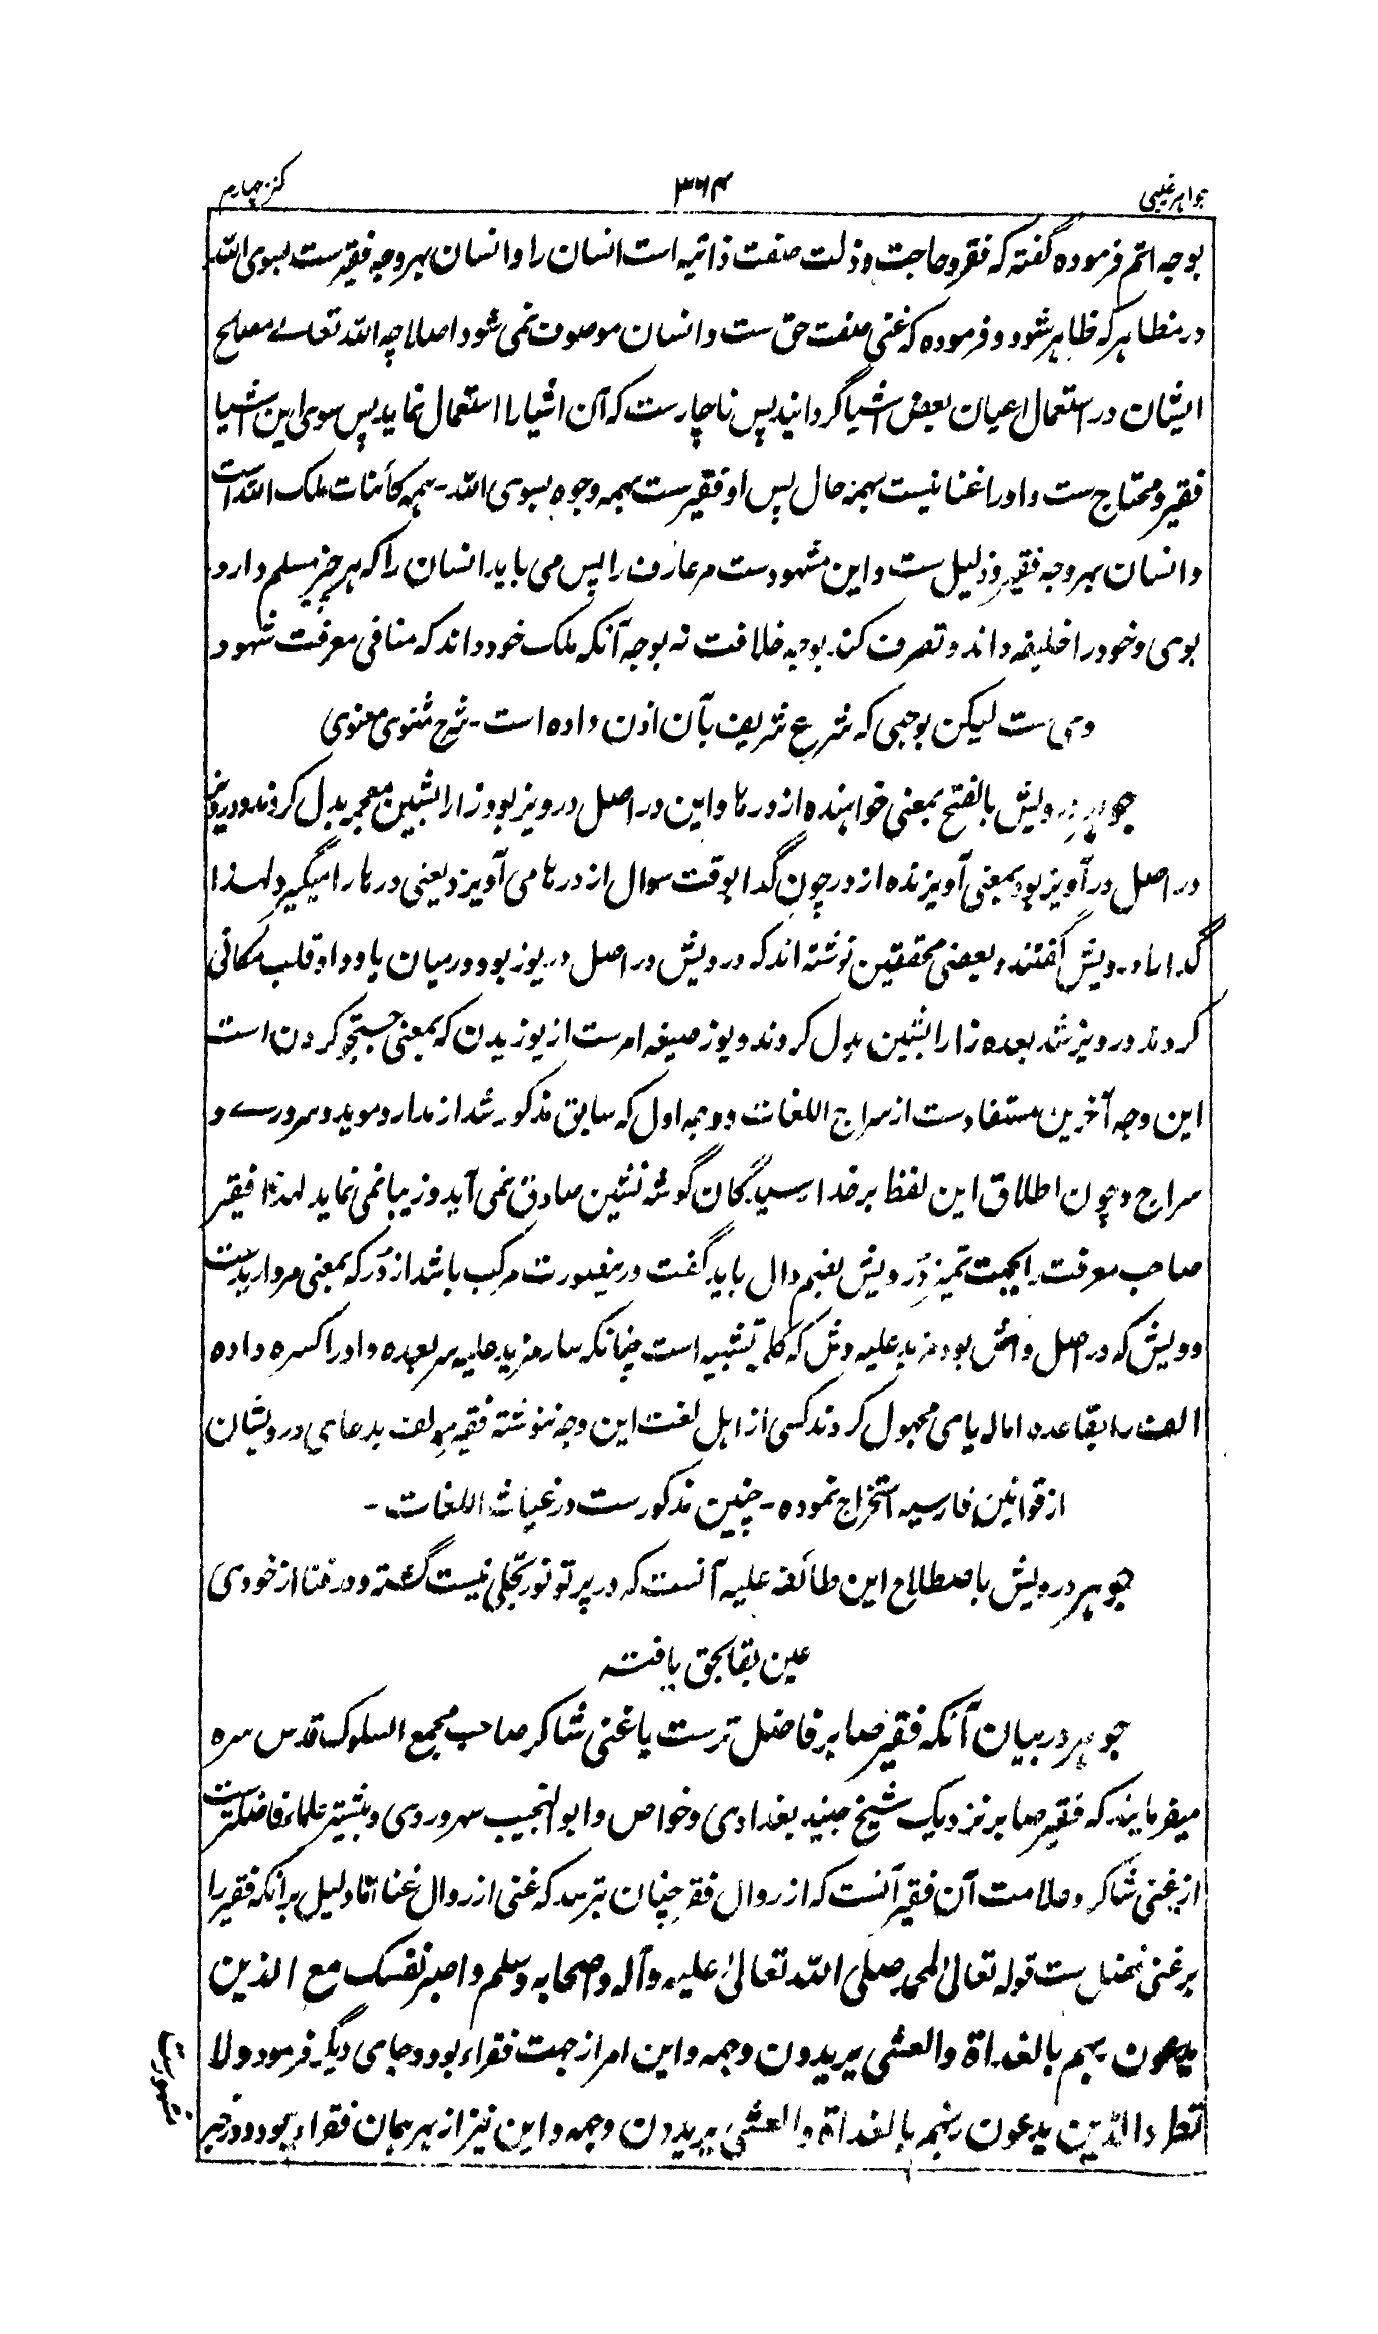 جواہر غیبی
۳۶۴
کنز چہارم
بوجہ اتم فرمودہ گفتہ کہ فقر و حاجت و ذلت صفت ذاتیہ است انسان را و انسان بہر وجہ فقیرست بسوی اللہ
در مظاہر کہ ظاہر شود و فرمودہ کہ غنی صفت حق ست و انسان موصوف نمی شود اصلا چہ اللہ تعالے مصلح
ایشان در استعمال اعیان بعض اشیا گردانید پس ناچارست کہ آن اشیا را استعمال نماید پس سوی این اشیا
فقیر و محتاج ست و او را غنا نیست بہمہ حال پس او فقیرست بہمہ وجوہ بسوی اللہ - ہمہ کائنات ملک اللہ است
و انسان بہر وجہ فقیر و ذلیل ست و این مشہودست مر عارف را پس می باید انسان را کہ ہر چیز مسلم دارد
بوی و خود را خلیفہ داند و تصرف کند بوجہ خلافت نہ بوجہ آنکہ ملک خود داند کہ منافی معرفت شہود
وی ست لیکن بوجہی کہ شرع شریف بآن اذن دادہ است - شرح مثنوی معنوی
جوہر درویش بالفتح بمعنی خواہندہ از درہا و این در اصل درویز بود زا را بشین معجمہ بدل کردند و درویز
در اصل درآویز بود بمعنی آویزندہ از در چون گدا بوقت سوال از درہا می آویزد یعنی درہا را میگیرد لہذا
گدا را درویش گفتند و بعضی محققین نوشتہ اند کہ درویش در اصل دریوز بود در میان یا و واو قلب مکانی
کردند درویز شد بعدہ زا را بشین بدل کردند و یوز صیغہ امرست از یوزیدن کہ بمعنی جستجو کردن است
این وجہ آخرین مستفادست از سراج اللغات و وجہ اول کہ سابق مذکور شد از مدار و موید و سرورے و
سراج و چون اطلاق این لفظ بر خدا رسیدگان گوشہ نشین صادق نمی آید و زیبا نمی نماید لہذا فقیر
صاحب معرفت را بجہت تمیز دُرویش بضم دال باید گفت درینصورت مرکب باشد از دُر کہ بمعنی مرواریدست
و ویش کہ در اصل واش بود مزید علیہ وش کہ کلمہ تشبیہ است چنانکہ سار مزید علیہ سر بعدہ واو را کسرہ دادہ
الف را بقاعدہ امالہ یای مجہول کردند کسی از اہل لغت این وجہ ننوشتہ فقیر مولف بدعای درویشان
از قوانین فارسیہ استخراج نمودہ - چنین مذکورست در غیاث اللغات -
جوہر درویش باصطلاح این طائفہ علیہ آنست کہ در پرتو نور تجلی نیست گشتہ و در فنا از خودی
عین بقا بحق یافتہ
جوہر در بیان آنکہ فقیر صابر فاضل ترست یا غنی شاکر صاحب مجمع السلوک قدس سرہ
میفرمایند کہ فقیر صابر نزدیک شیخ جنید بغدادی و خواص و ابو النجیب سہروردی و بیشتر علماء فاضلترست
از غنی شاکر و علامت آن فقیر آنست کہ از زوال فقر چنان ترسد کہ غنی از زوال غنا اما دلیل برانکہ فقیر را
بر غنی فضل ست قولہ تعالی لمحمد صلی اللہ تعالی علیہ و آلہ و اصحابہ وسلم واصبر نفسک مع الذین
یدعون ربہم بالغداة والعشی یریدون وجہہ و این امر از جہت فقراء بود و جای دیگر فرمود ولا
تطرد الذین یدعون ربہم بالغداة والعشی یریدون وجہہ و این نیز از بہر ہمان فقراء بود و در خبر
مشہورست